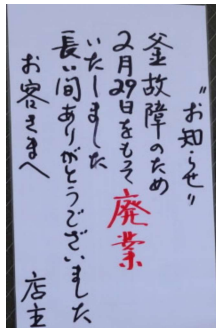 "お知らせ"
釜故障のため
2月29日をもって廃業
いたしました
長い間ありがとうございました
お客さまへ
店主